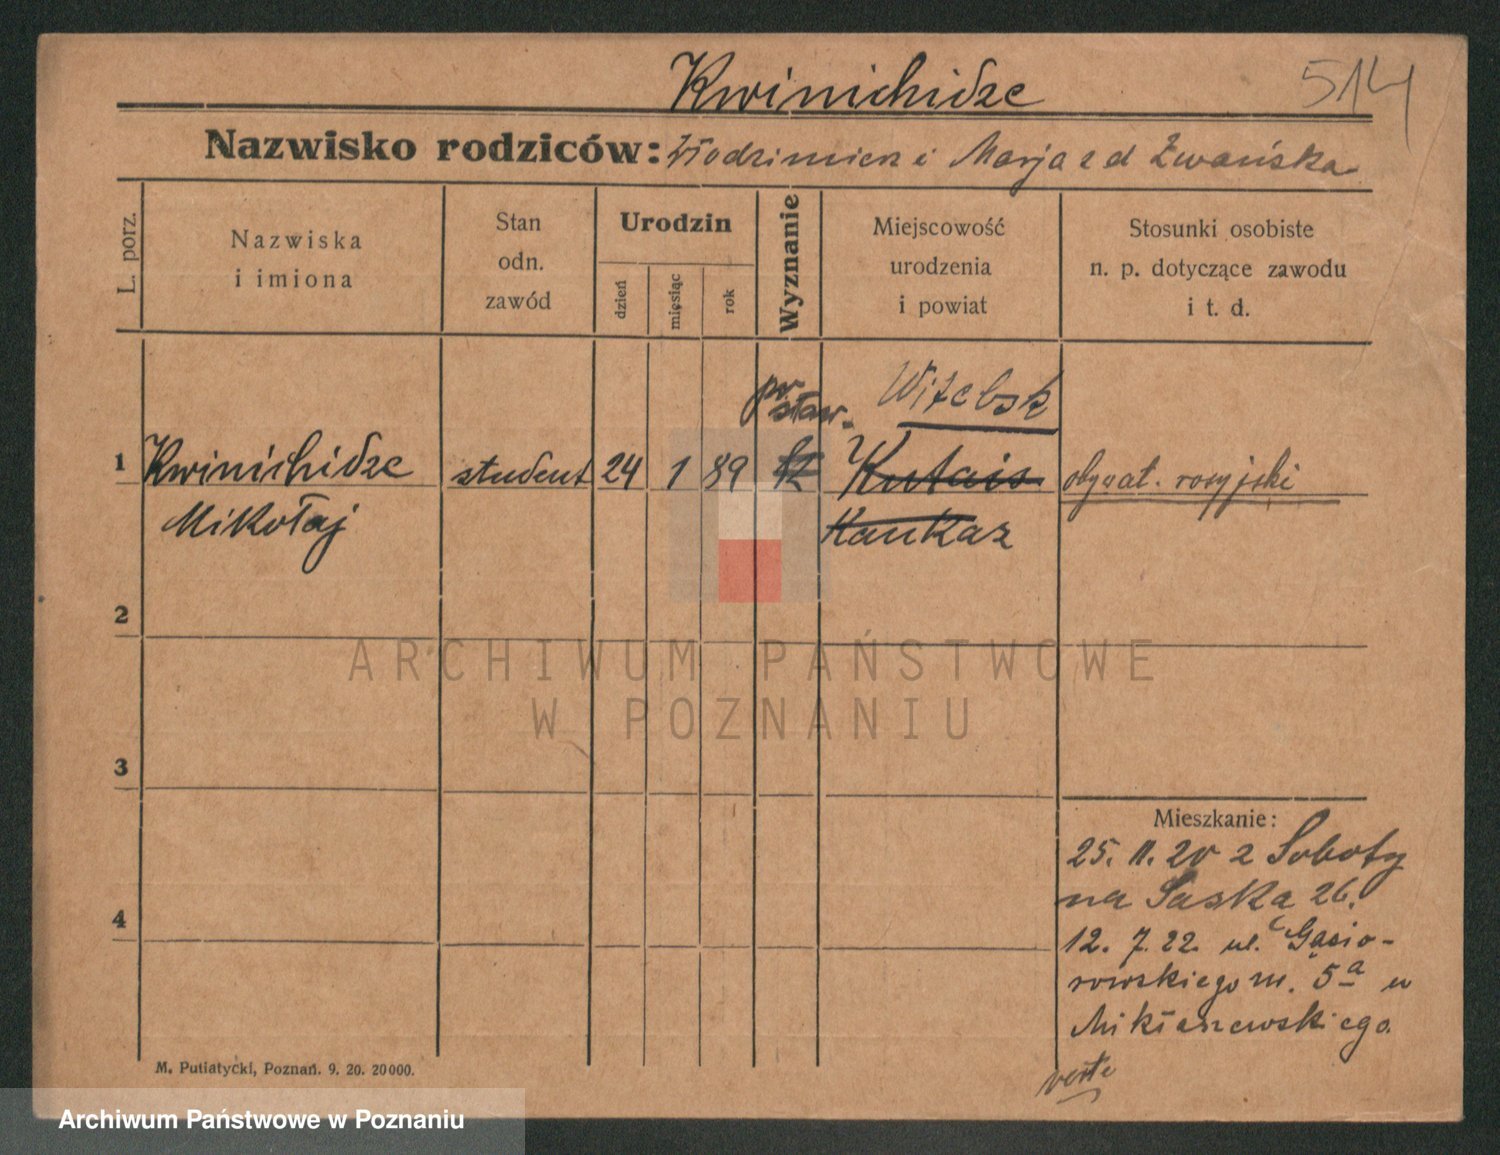 Kwinichidze
514
Nazwisko rodziców: Włodzimierz i Marja z d Zwańska
L. porz.
Nazwiska
i imiona
Stan
odn.
zawód
Urodzin
dzień
miesiąc
rok
Wyznanie
Miejscowość
urodzenia
i powiat
Stosunki osobiste
n. p. dotyczące zawodu
i t. d.
prawosław.
Witebsk
1 Kwinichidze student 24 1 89 Kutais obywat. rosyjski
Mikołaj Kaukaz
2
3
4
Mieszkanie:
25. 11. 20 z Soboty
na Saska 26.
12. 7. 22. ul. Gąsio-
rowskiego m. 5a u
Mikłaszewskiego
verte
M. Putiatycki, Poznań. 9. 20. 20000.
ARCHIWUM PAŃSTWOWE
W POZNANIU
Archiwum Państwowe w Poznaniu